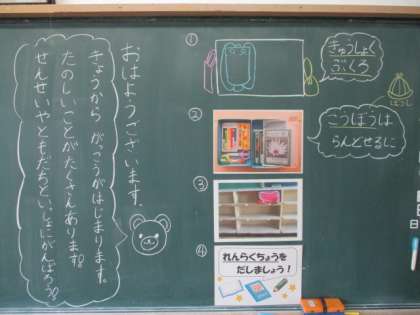 おはようございます。
きょうから がっこうがはじまります。
たのしいことがたくさんあります♪
せんせいやともだちといっしょにがんばろう♪
①
きゅうしょく
ぶくろ
ぼうし
②
こうぼうは
らんどせるに
③
④
れんらくちょうを
だしましょう！
日